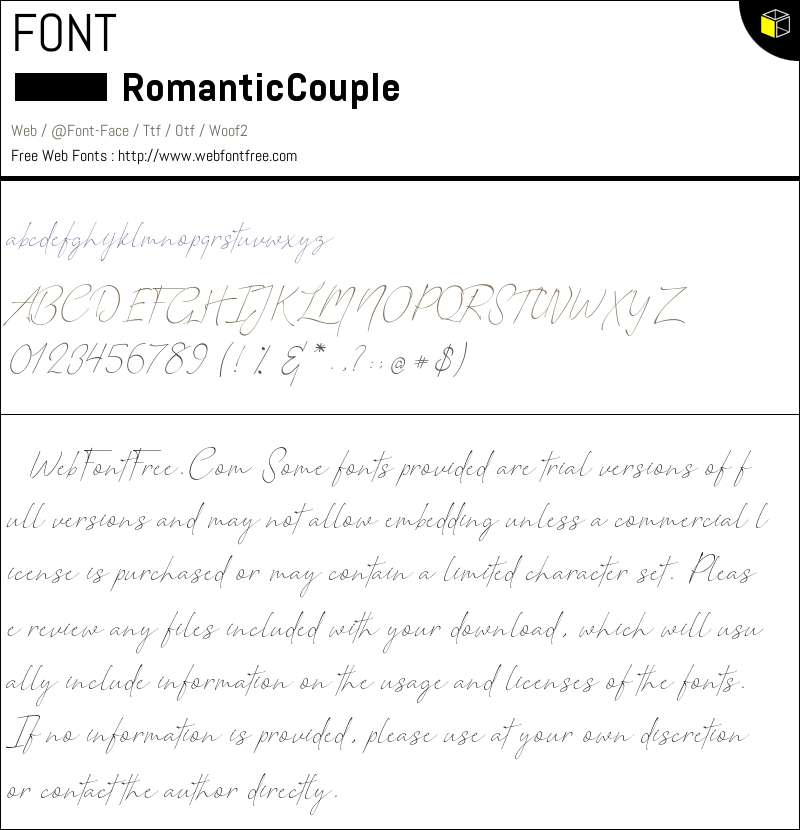 FONT
RomanticCouple
Web / @Font-Face / Ttf / Otf / Woof2
Free Web Fonts : http://www.webfontfree.com
abcdefghijklmnopqrstuvwxyz
ABCDEFGHIJKLMNOPQRSTUVWXYZ
0123456789 (! % & * . ,? : ; @ # $)
WebFontFree.Com Some fonts provided are trial versions of f
ull versions and may not allow embedding unless a commercial l
icense is purchased or may contain a limited character set. Pleas
e review any files included with your download, which will usu
ally include information on the usage and licenses of the fonts.
If no information is provided, please use at your own discretion
or contact the author directly.